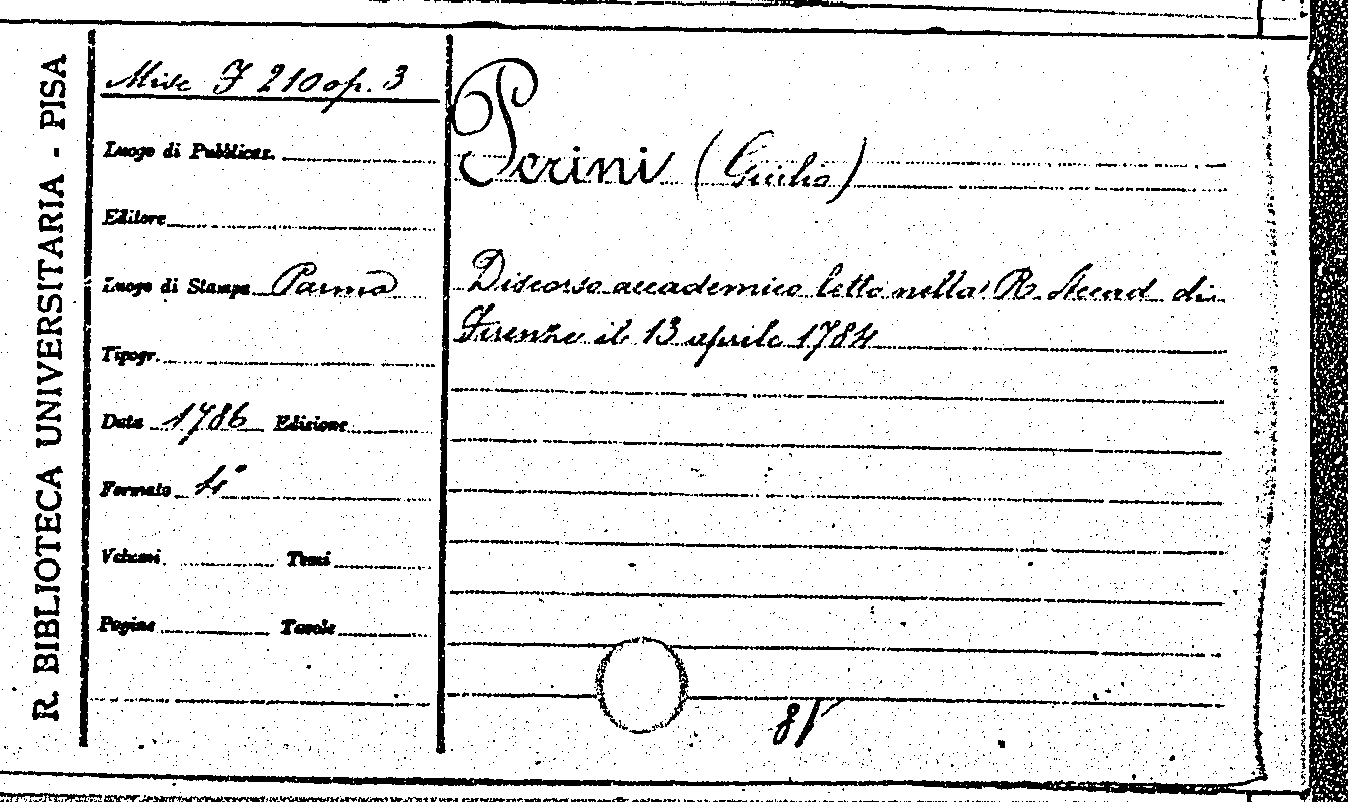 R. BIBLIOTECA UNIVERSITARIA - PISA
Misc F 210 op. 3
Luogo di Pubblicaz.
Editore
Luogo di Stampa Parma
Tipogr.
Data 1786 Edizione
Formato 4°
Volumi Tomi
Pagine Tavole
Perini (Giulio)
Discorso accademico letto nella R. Accad di
Firenze il 13 aprile 1784